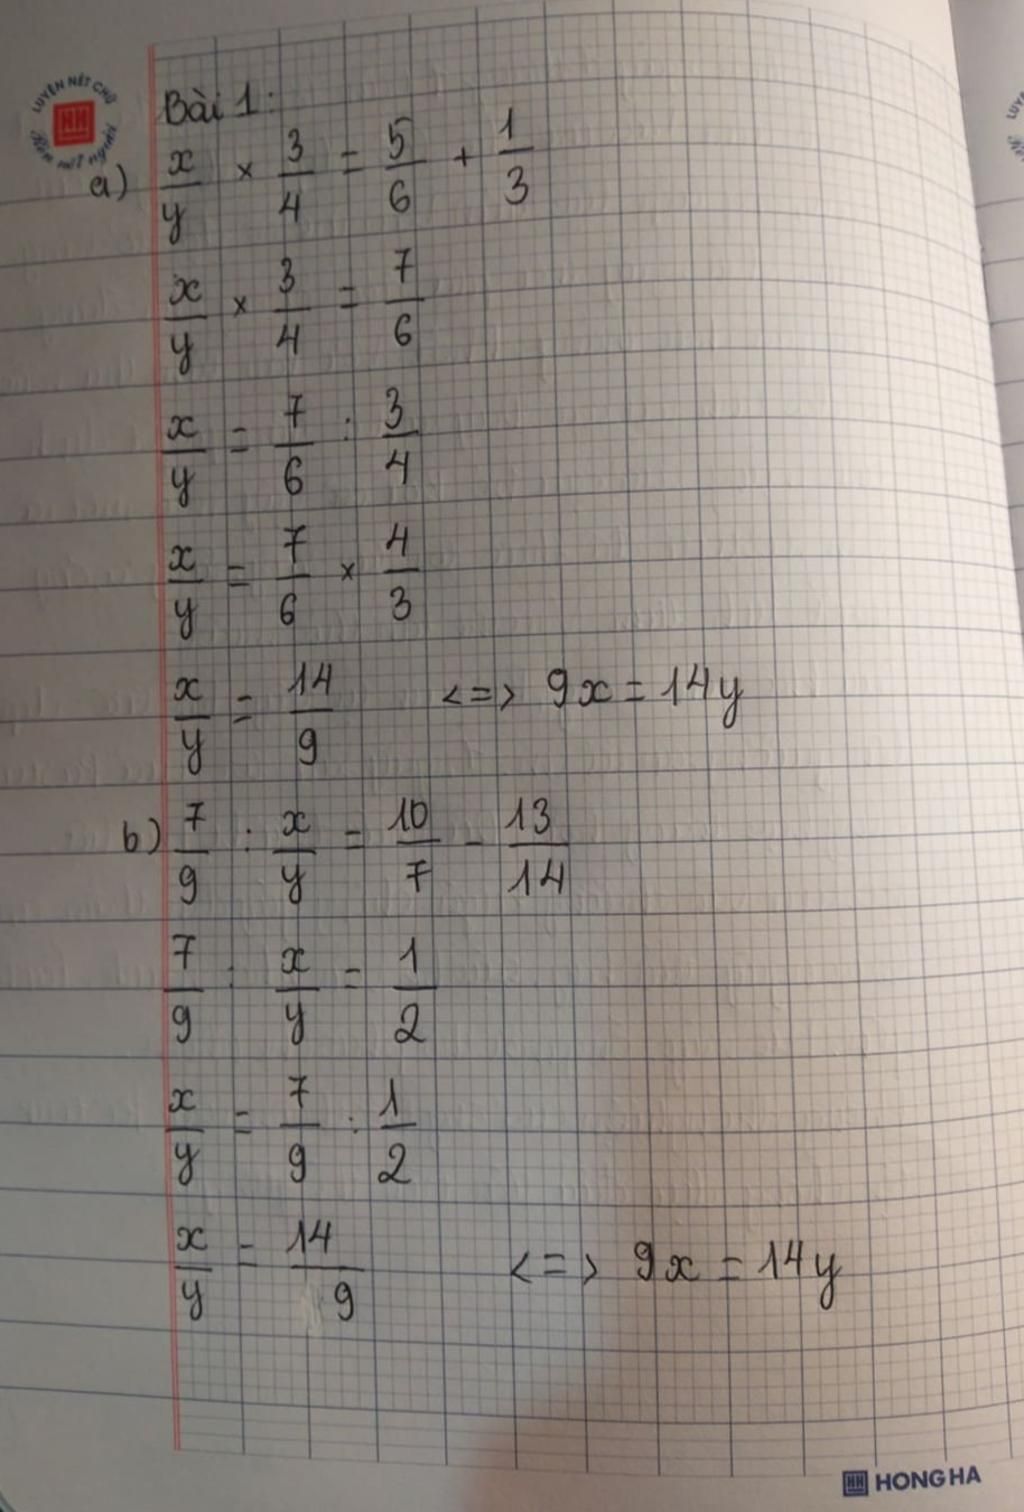 LUYỆN NÉT CHỮ
Rèn nết người
Bài 1:
a) x/y × 3/4 = 5/6 + 1/3
x/y × 3/4 = 7/6
x/y = 7/6 : 3/4
x/y = 7/6 × 4/3
x/y = 14/9 <=> 9x = 14y
b) 7/9 : x/y = 10/7 - 13/14
7/9 : x/y = 1/2
x/y = 7/9 : 1/2
x/y = 14/9 <=> 9x = 14y
HONG HA